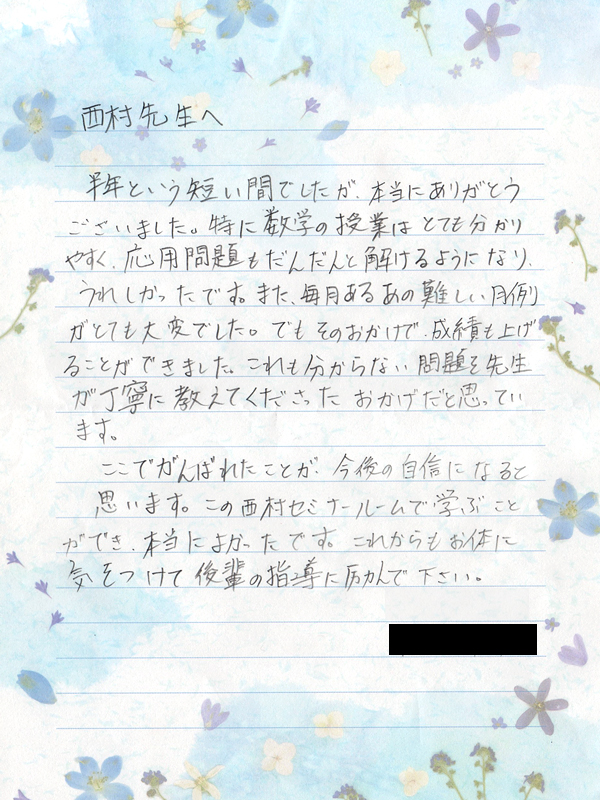 西村先生へ
半年という短い間でしたが、本当にありがとう
ございました。特に数学の授業はとても分かり
やすく、応用問題もだんだんと解けるようになり、
うれしかったです。また、毎月あるあの難しい月例
がとても大変でした。でもそのおかげで、成績も上げ
ることができました。これも分からない問題を先生
が丁寧に教えてくださったおかげだと思ってい
ます。
ここでがんばれたことが、今後の自信になると
思います。この西村セミナールームで学ぶこと
ができ、本当によかったです。これからもお体に
気をつけて後輩の指導に励んで下さい。